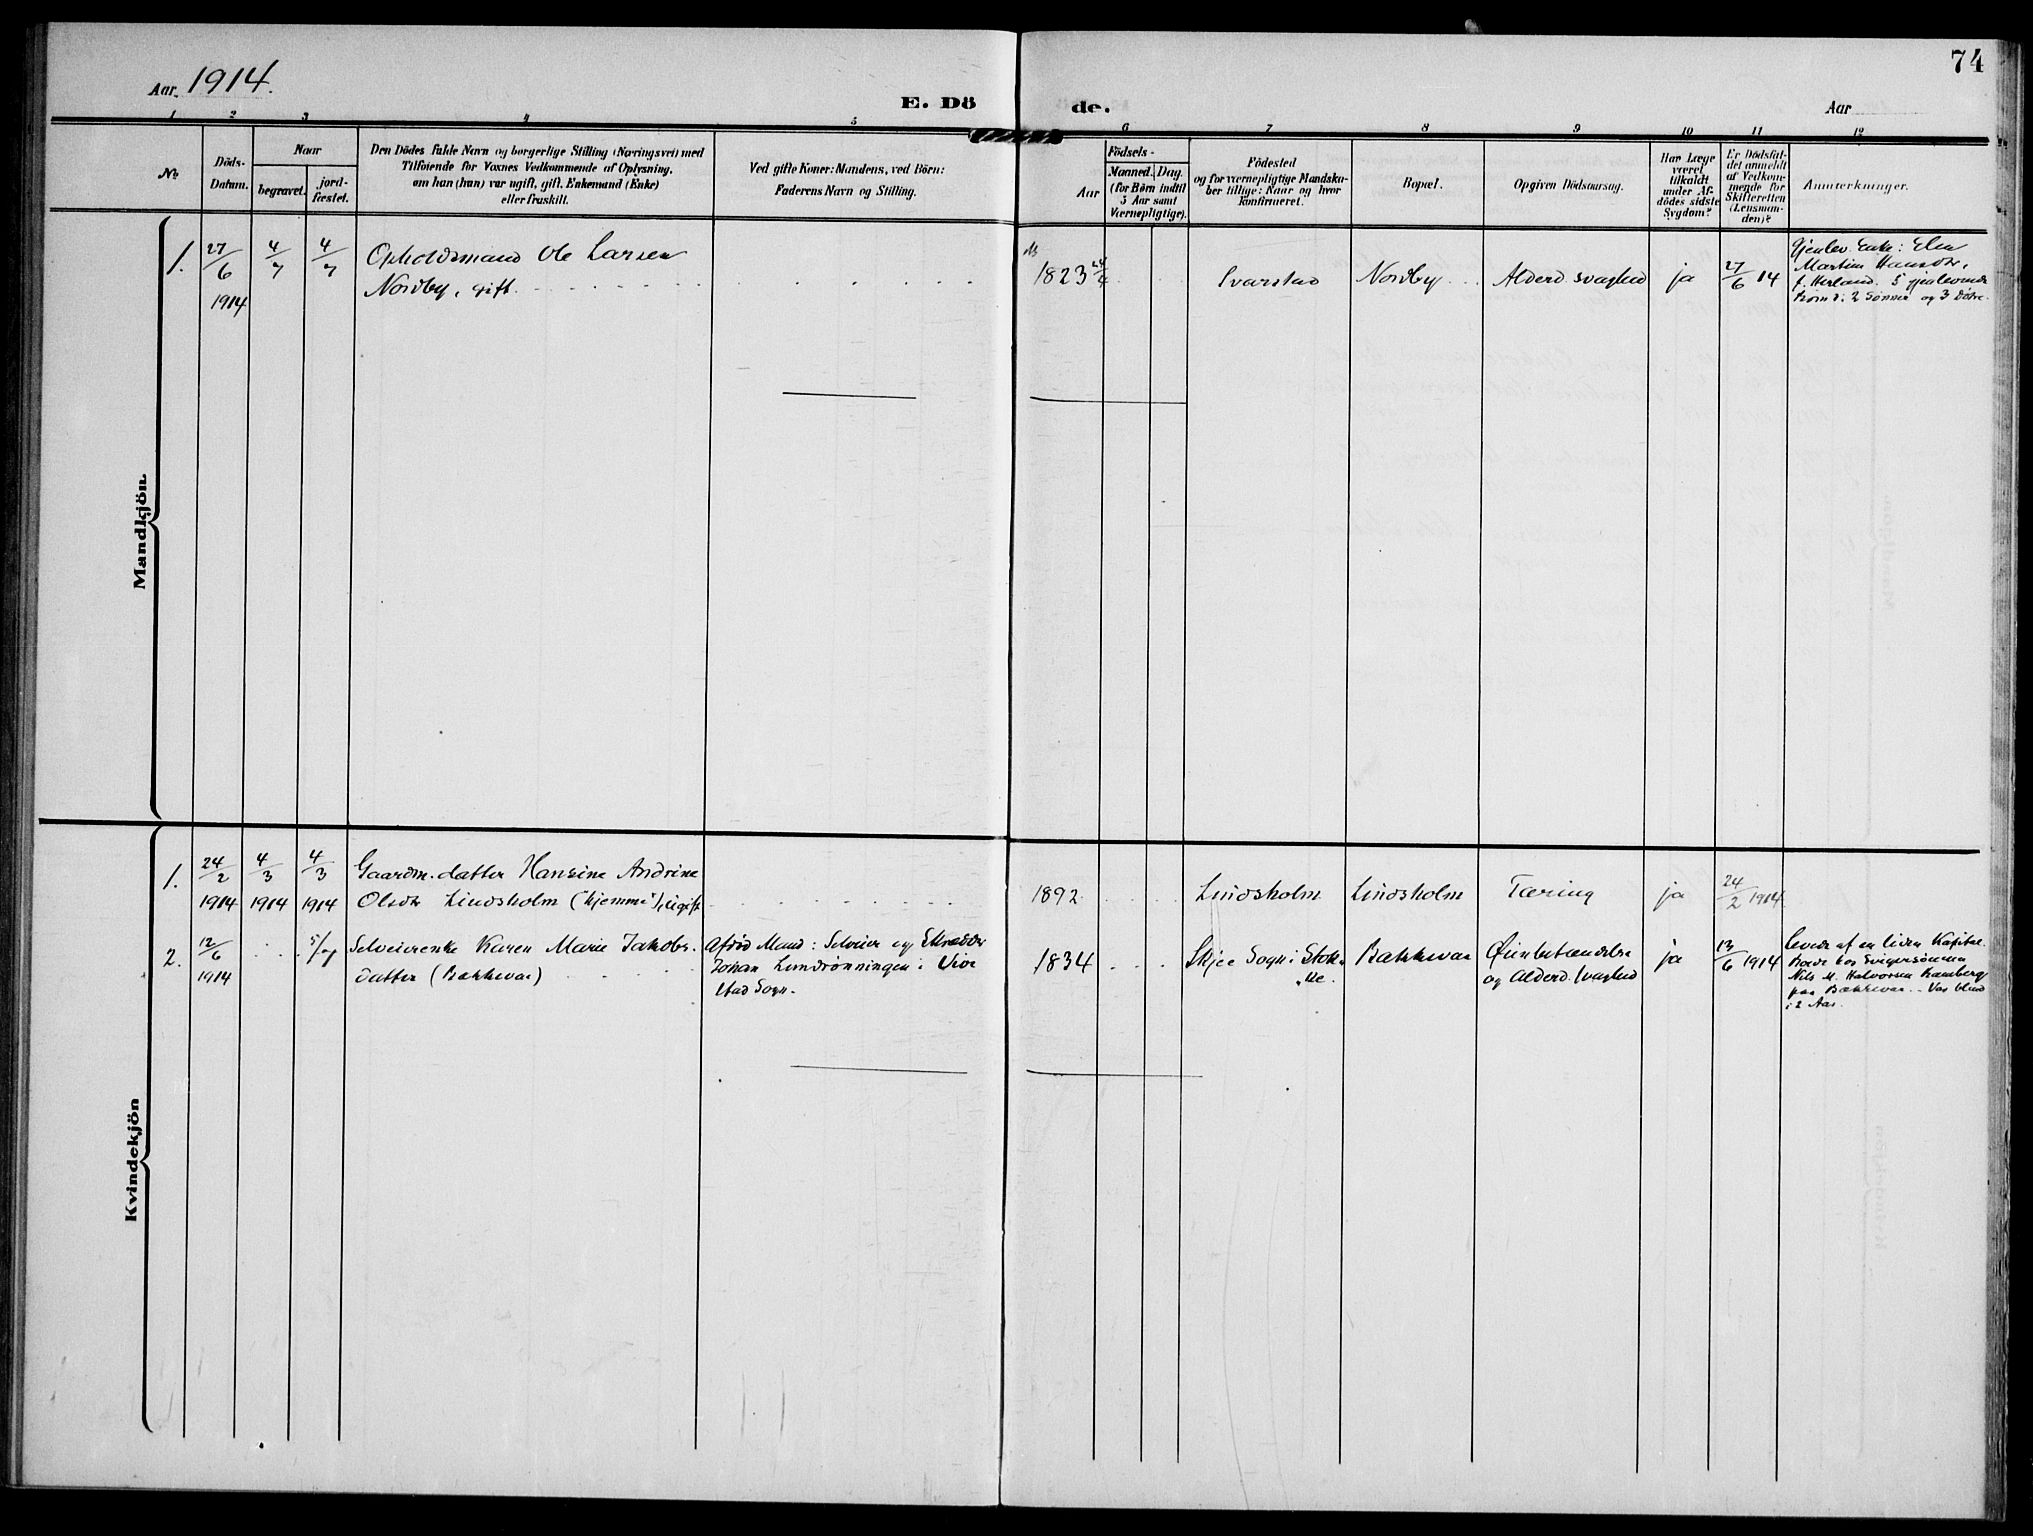 74
Aar 1914.
E. Dö de.
Aar
1 2 3 4 5 6 7 8 9 10 11 12
No.
Döds-
Datum.
Naar
begravet.
jord-
fæstet.
Den Dödes fulde Navn og borgerlige Stilling (Næringsvei) med
Tilföiende for Voxnes Vedkommende af Oplysning,
om han (hun) var ugift, gift, Enkemand (Enke)
eller fraskilt.
Ved gifte Koner: Mandens, ved Börn:
Faderens Navn og Stilling.
Födsels-
Aar
Maaned. Dag.
(for Börn indtil
5 Aar samt
Værnepligtige).
Födested
og for værnepligtige Mandska-
ber tillige: Naar og hvor
konfirmeret.
Bopæl.
Opgiven Dödsaarsag.
Har Læge
været
tilkaldt
under Af-
dödes sidste
Sygdom?
Er Dödsfal-
det anmeldt
af Vedkom-
mende for
Skifteretten
(Lensman-
den)?
Anmærkninger.
Mandkjön.
1. 27/6 1914 4/7 4/7
Opholdsmand Ole Larsen
Nordby, gift
1823 24/6
Svarstad
Nordby
Alderd. svaghed
ja
27/6 14
Gjenlev. Enke: Elen
Martin Hansdtr,
f. Herland. 5 gjenlevende
Börn: 2 Sönner og 3 Dötre.
Kvindekjön
1. 24/2 1914 4/3 1914 4/3 1914
Gaardm. datter Hansine Andrine
Olsdtr Lindsholm (hjemme), ugift
1892
Lindsholm
Lindsholm
Tæring
ja
24/2 1914
2. 12/6 1914 5/7
Selveierenke Karen Marie Jakobs-
datter (Bakkevar)
Afdöd Mand: Selveier og
Johan Lundrönningen i Vivе
stad Sogn.
1834
Skjee Sogn i Stok-
ke.
Bakkevar
Öienbetændelse
og Alderd. svaghed
ja
13/6 1914
Levede af en liden Kapital.
Boede hos Svigersönnen
Nils M. Halvorsen Ramberg
paa Bakkevar. - Var blind
i 2 Aar.